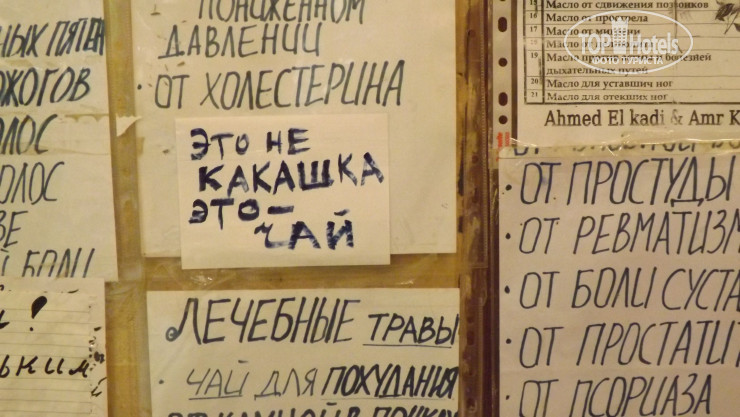 НЫХ ПЯТЕН
ОЖОГОВ
ЛОС
ОЛОС
ВЕ
Й БОЛИ
И!
ЬКИМ
ПОНИЖЕННОМ
ДАВЛЕНИИ
· ОТ ХОЛЕСТЕРИНА
ЭТО НЕ
КАКАШКА
ЭТО –
ЧАЙ
ЛЕЧЕБНЫЕ ТРАВЫ
· ЧАЙ ДЛЯ ПОХУДАНИЯ
15 Масло от сдвижения позвонков
16 Масло от прострела
17 Масло от
18 Масло
19 Масло болезней
дыхательных путей
20 Масло для уставших ног
21 Масло для отекших ног
TOP Hotels
ФОТО ТУРИСТА
Ahmed El kadi & Amr K
· ОТ ПРОСТУДЫ
· ОТ РЕВМАТИЗМ
· ОТ БОЛИ СУСТА
· ОТ ПРОСТАТИТ
· ОТ ПСОРИАЗА